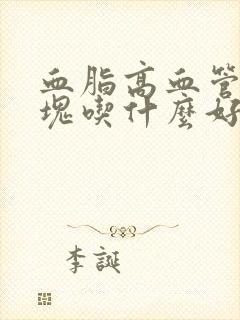 血脂高血管
塊喫什麼好
李誕